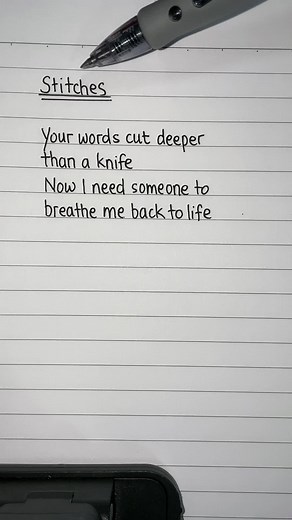 Stitches
Your words cut deeper
than a knife
Now I need someone to
breathe me back to life